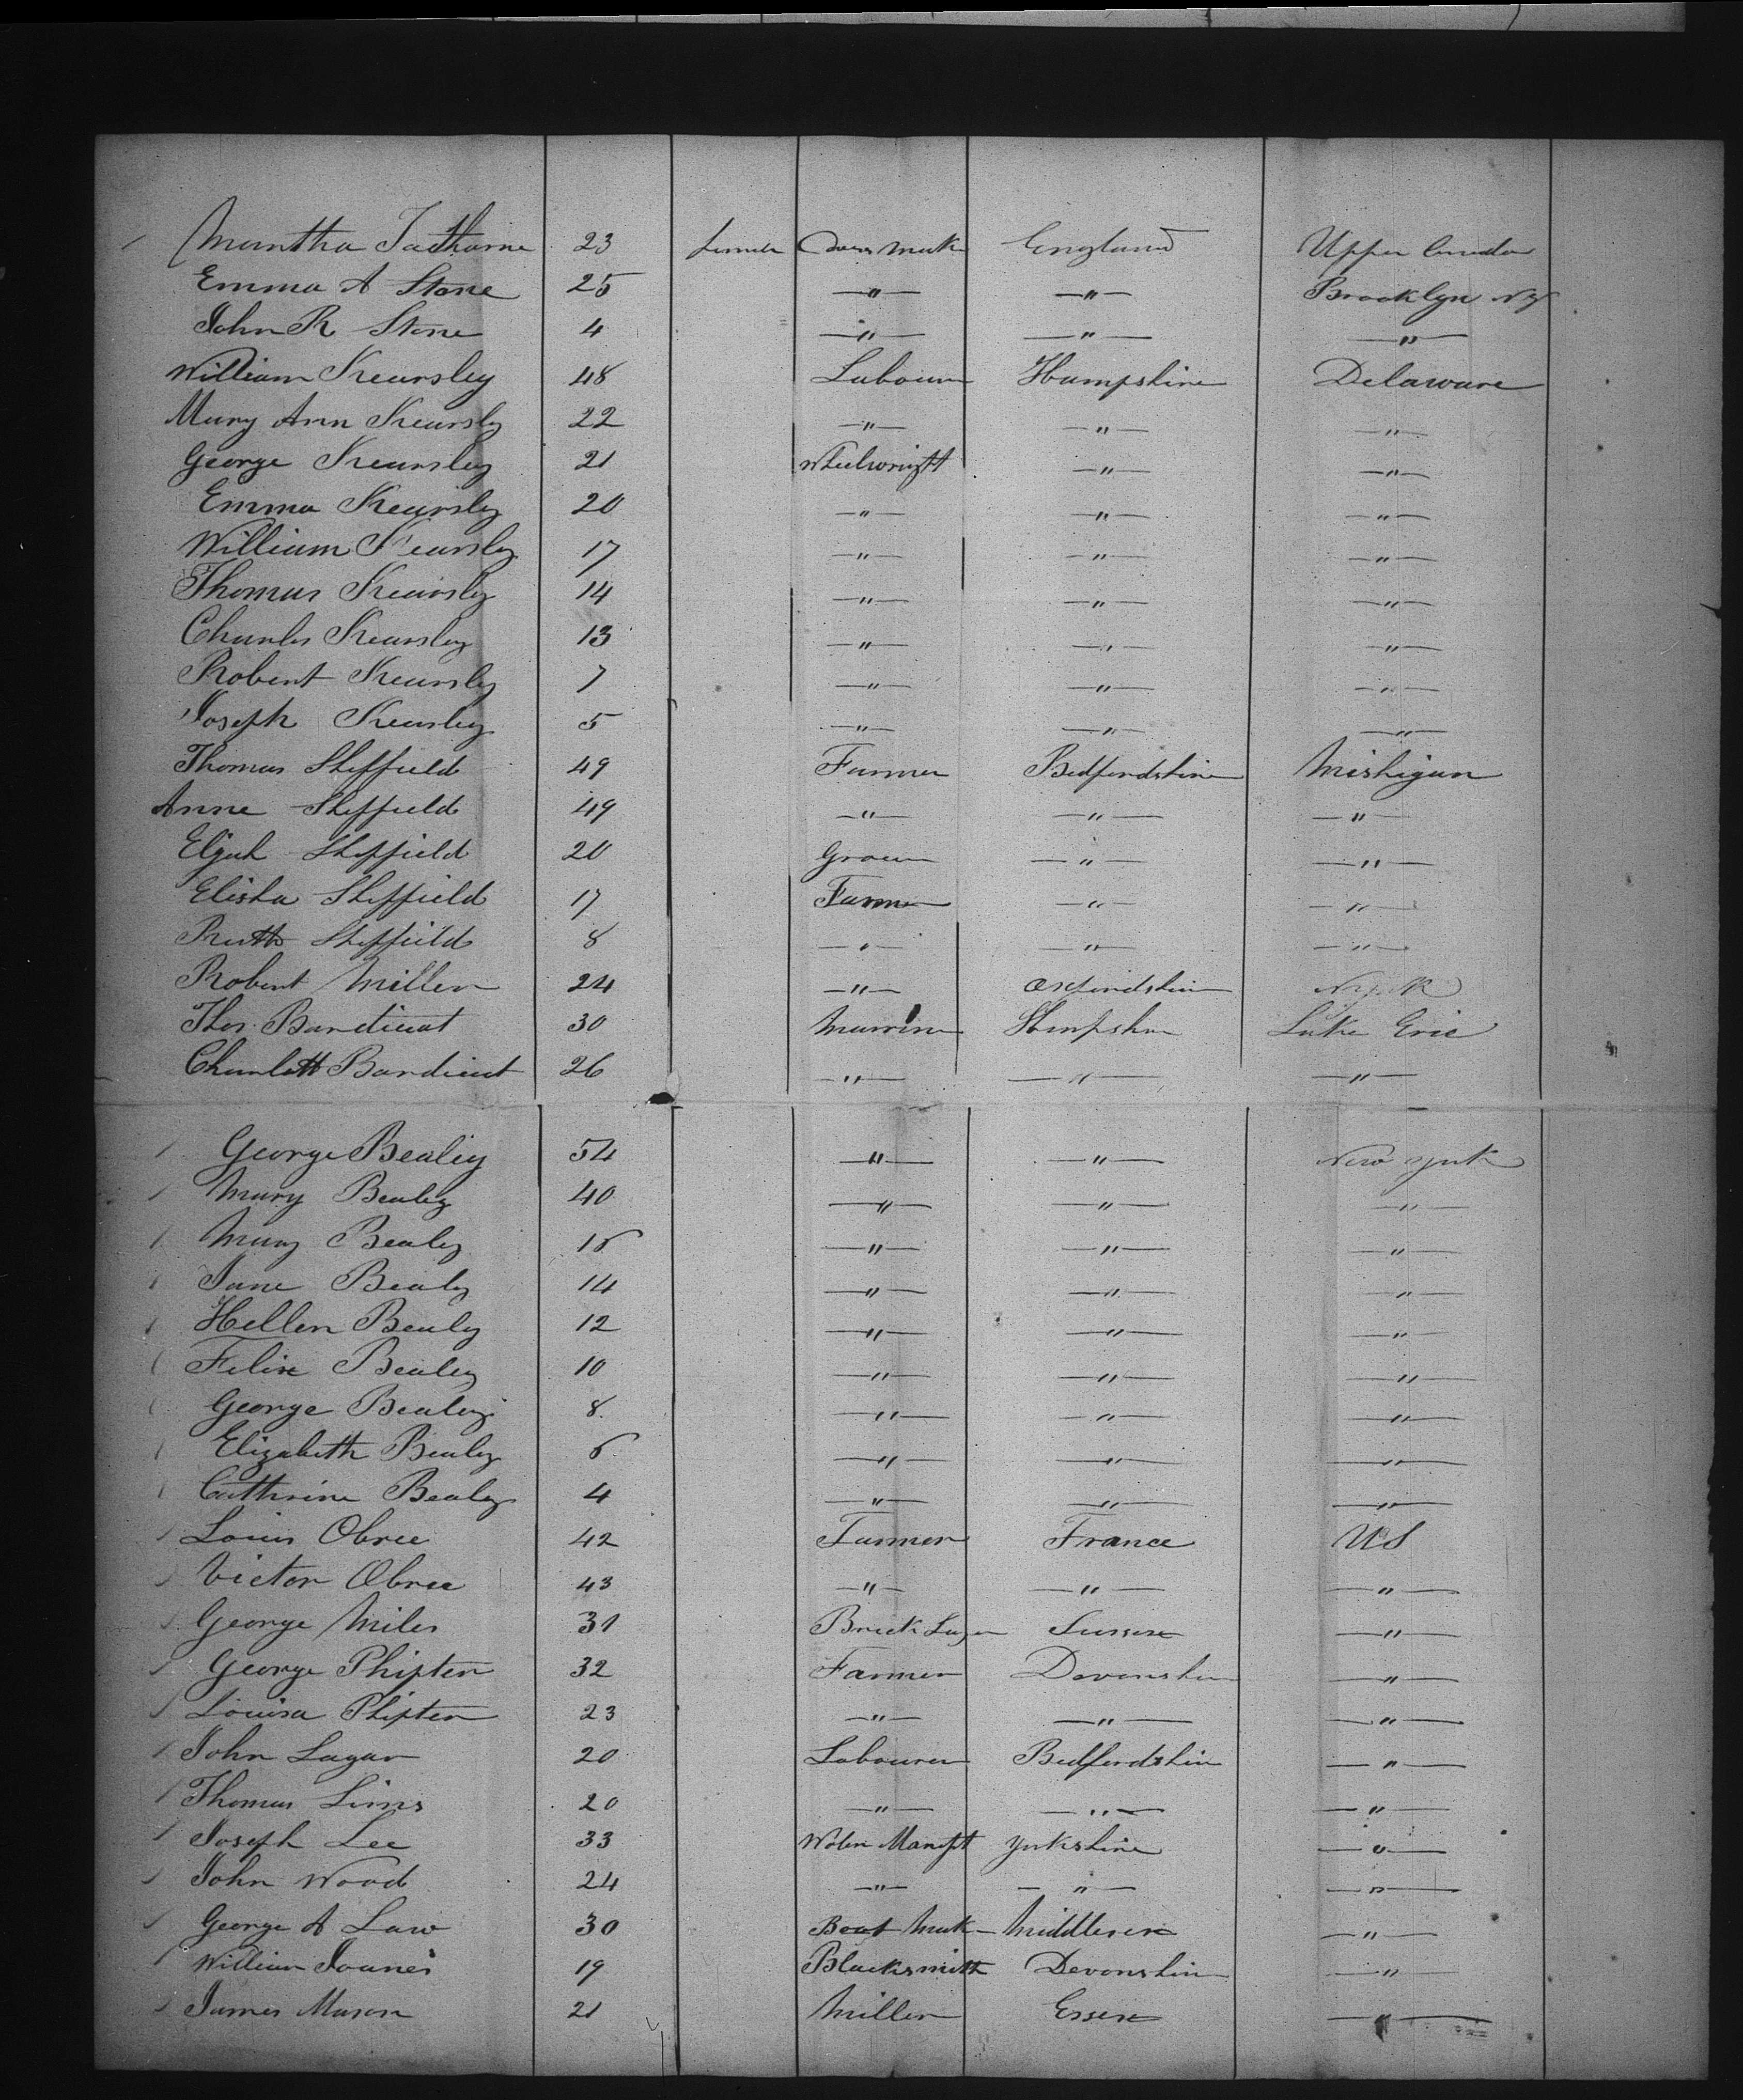 Martha 23 England Upper Canada
Emma A Stone 25 —"— —"— Brooklyn NY
John R Stone 4 —"— —"— —"—
William Kearsley 48 Labourer Hampshire Delaware
Mary Ann Kearsley 22 —"— —"— —"—
George Kearsley 21 Wheelwright —"— —"—
Emma Kearsley 20 —"— —"— —"—
William Kearsley 17 —"— —"— —"—
Thomas Kearsley 14 —"— —"— —"—
Charles Kearsley 13 —"— —"— —"—
Robert Kearsley 7 —"— —"— —"—
Joseph Kearsley 5 —"— —"— —"—
Thomas Sheffield 49 Farmer Bedfordshire Mishigan
Anne Sheffield 49 —"— —"— —"—
Elijah Sheffield 20 —"— —"—
Elisha Sheffield 17 Farmer —"— —"—
Ruth Sheffield 8 —"— —"— —"—
Robert Miller 24 —"— Oxfordshire N York
Thos. Bardieut 30 Hampshire Lake Erie
Charlott Bardieut 26 —"— —"— —"—
George Bealey 54 —"— —"— New York
Mary Bealey 40 —"— —"— —"—
Mary Bealey —"— —"— —"—
Jane Bealey 14 —"— —"— —"—
Hellen Bealey 12 —"— —"— —"—
Felix Bealey 10 —"— —"— —"—
George Bealey 8 —"— —"— —"—
Elizabeth Bealey —"— —"— —"—
Cathrine Bealey 4 —"— —"— —"—
Louis Obree 42 Farmer France US
Victor Obree 43 —"— —"— —"—
George Miles 31 Brick Layer Sussex —"—
George Phipten 32 Farmer Devonshire —"—
Louisa Phipten 23 —"— —"— —"—
John Lagar 20 Labourer Bedfordshire —"—
Thomas Lims 20 —"— —"— —"—
Joseph Lee 33 Yorkshire —"—
John Wood 24 —"— —"— —"—
George A Law 30 Middlesex —"—
William 19 Blacksmith Devonshire —"—
James Mason 21 Miller Essex —"—